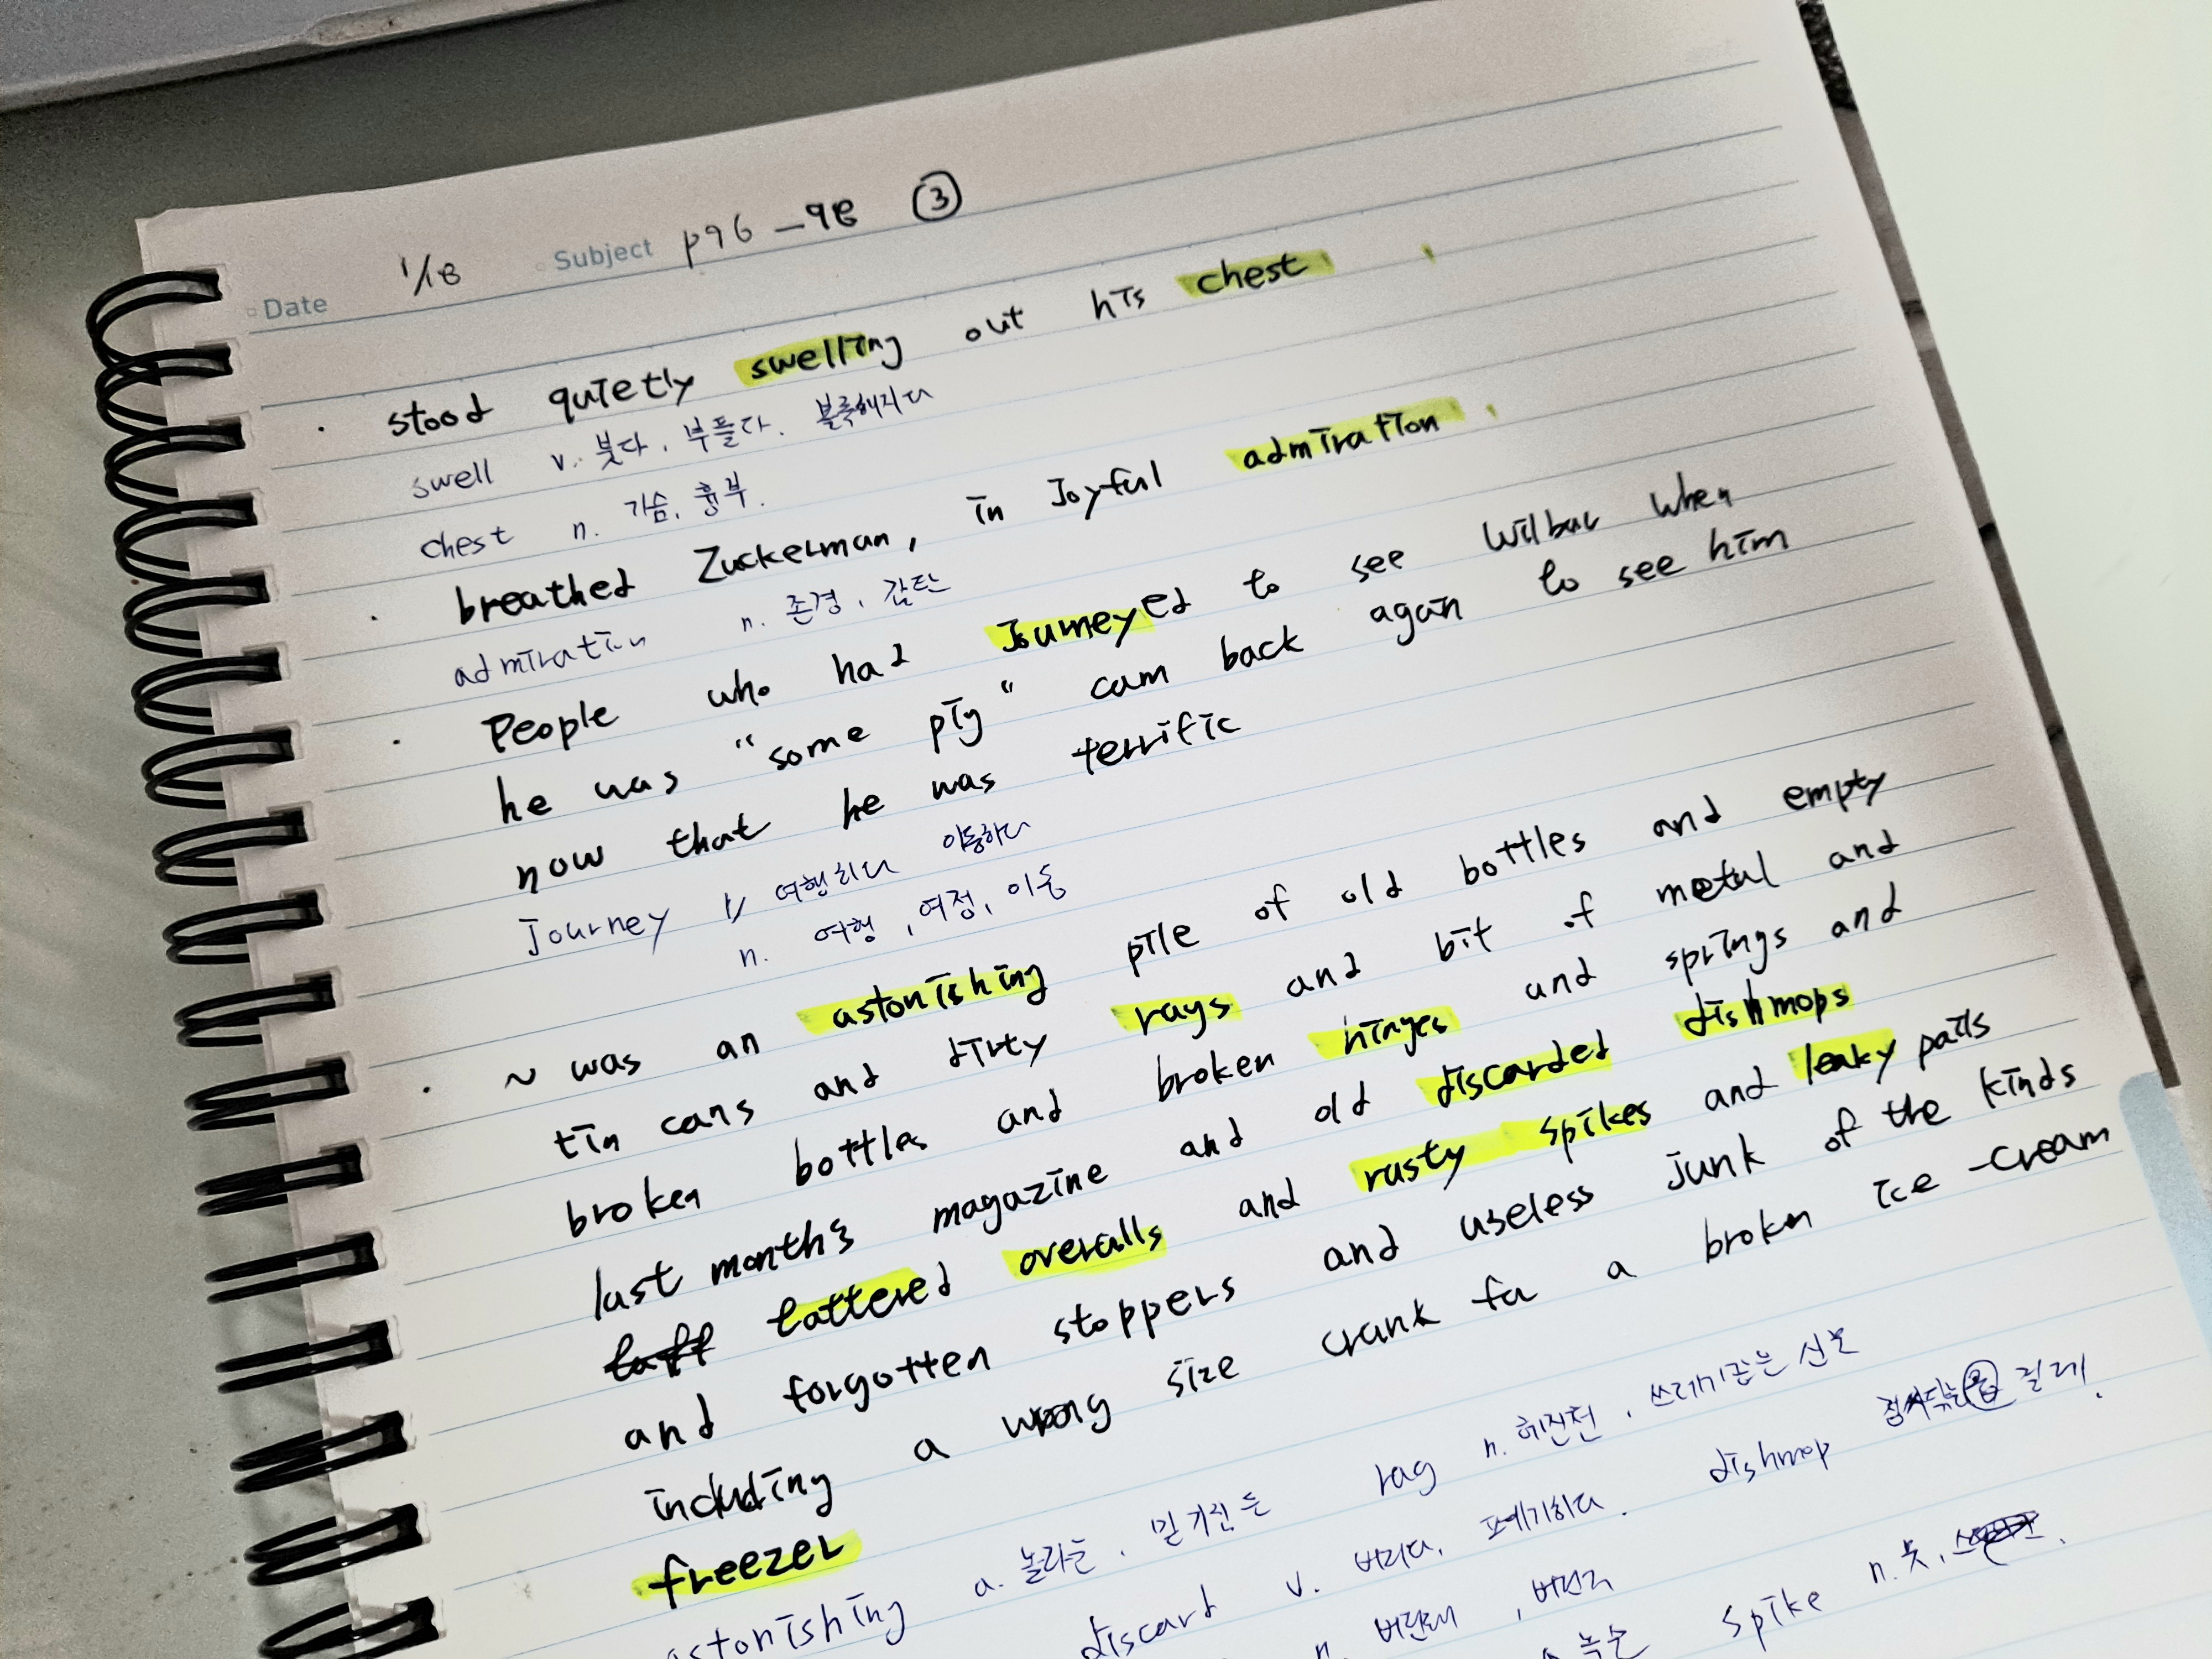 Date 1/18 Subject p96-98 ③
· stood quietly swelling out his chest.
swell v. 붓다, 부풀다. 불룩해지다
chest n. 가슴, 흉부.
· breathed Zuckerman, in Joyful admiration.
admiration n. 존경, 감탄
· People who had Journeyed to see Wilbur when
he was "some pig" cam back again to see him
now that he was terrific
Journey v 여행하다 이동하다
n. 여행, 여정, 이동
· ~ was an astonishing pile of old bottles and empty
tin cans and dirty rags and bit of metal and
broken bottles and broken hinges and springs and
last month's magazine and old discarded dishmops
tattered overalls and rusty spikes and leaky pails
and forgotten stoppers and useless junk of the kinds
including a wrong size crank for a broken ice-cream
freezer
astonishing a. 놀라운, 믿기힘든 rag n. 해진천, 쓰레기같은 신문
discard v. 버리다, 폐기하다. dishmop 접시닦는용 걸레.
n. 버린패, 버리기
녹슨 spike n. 못,